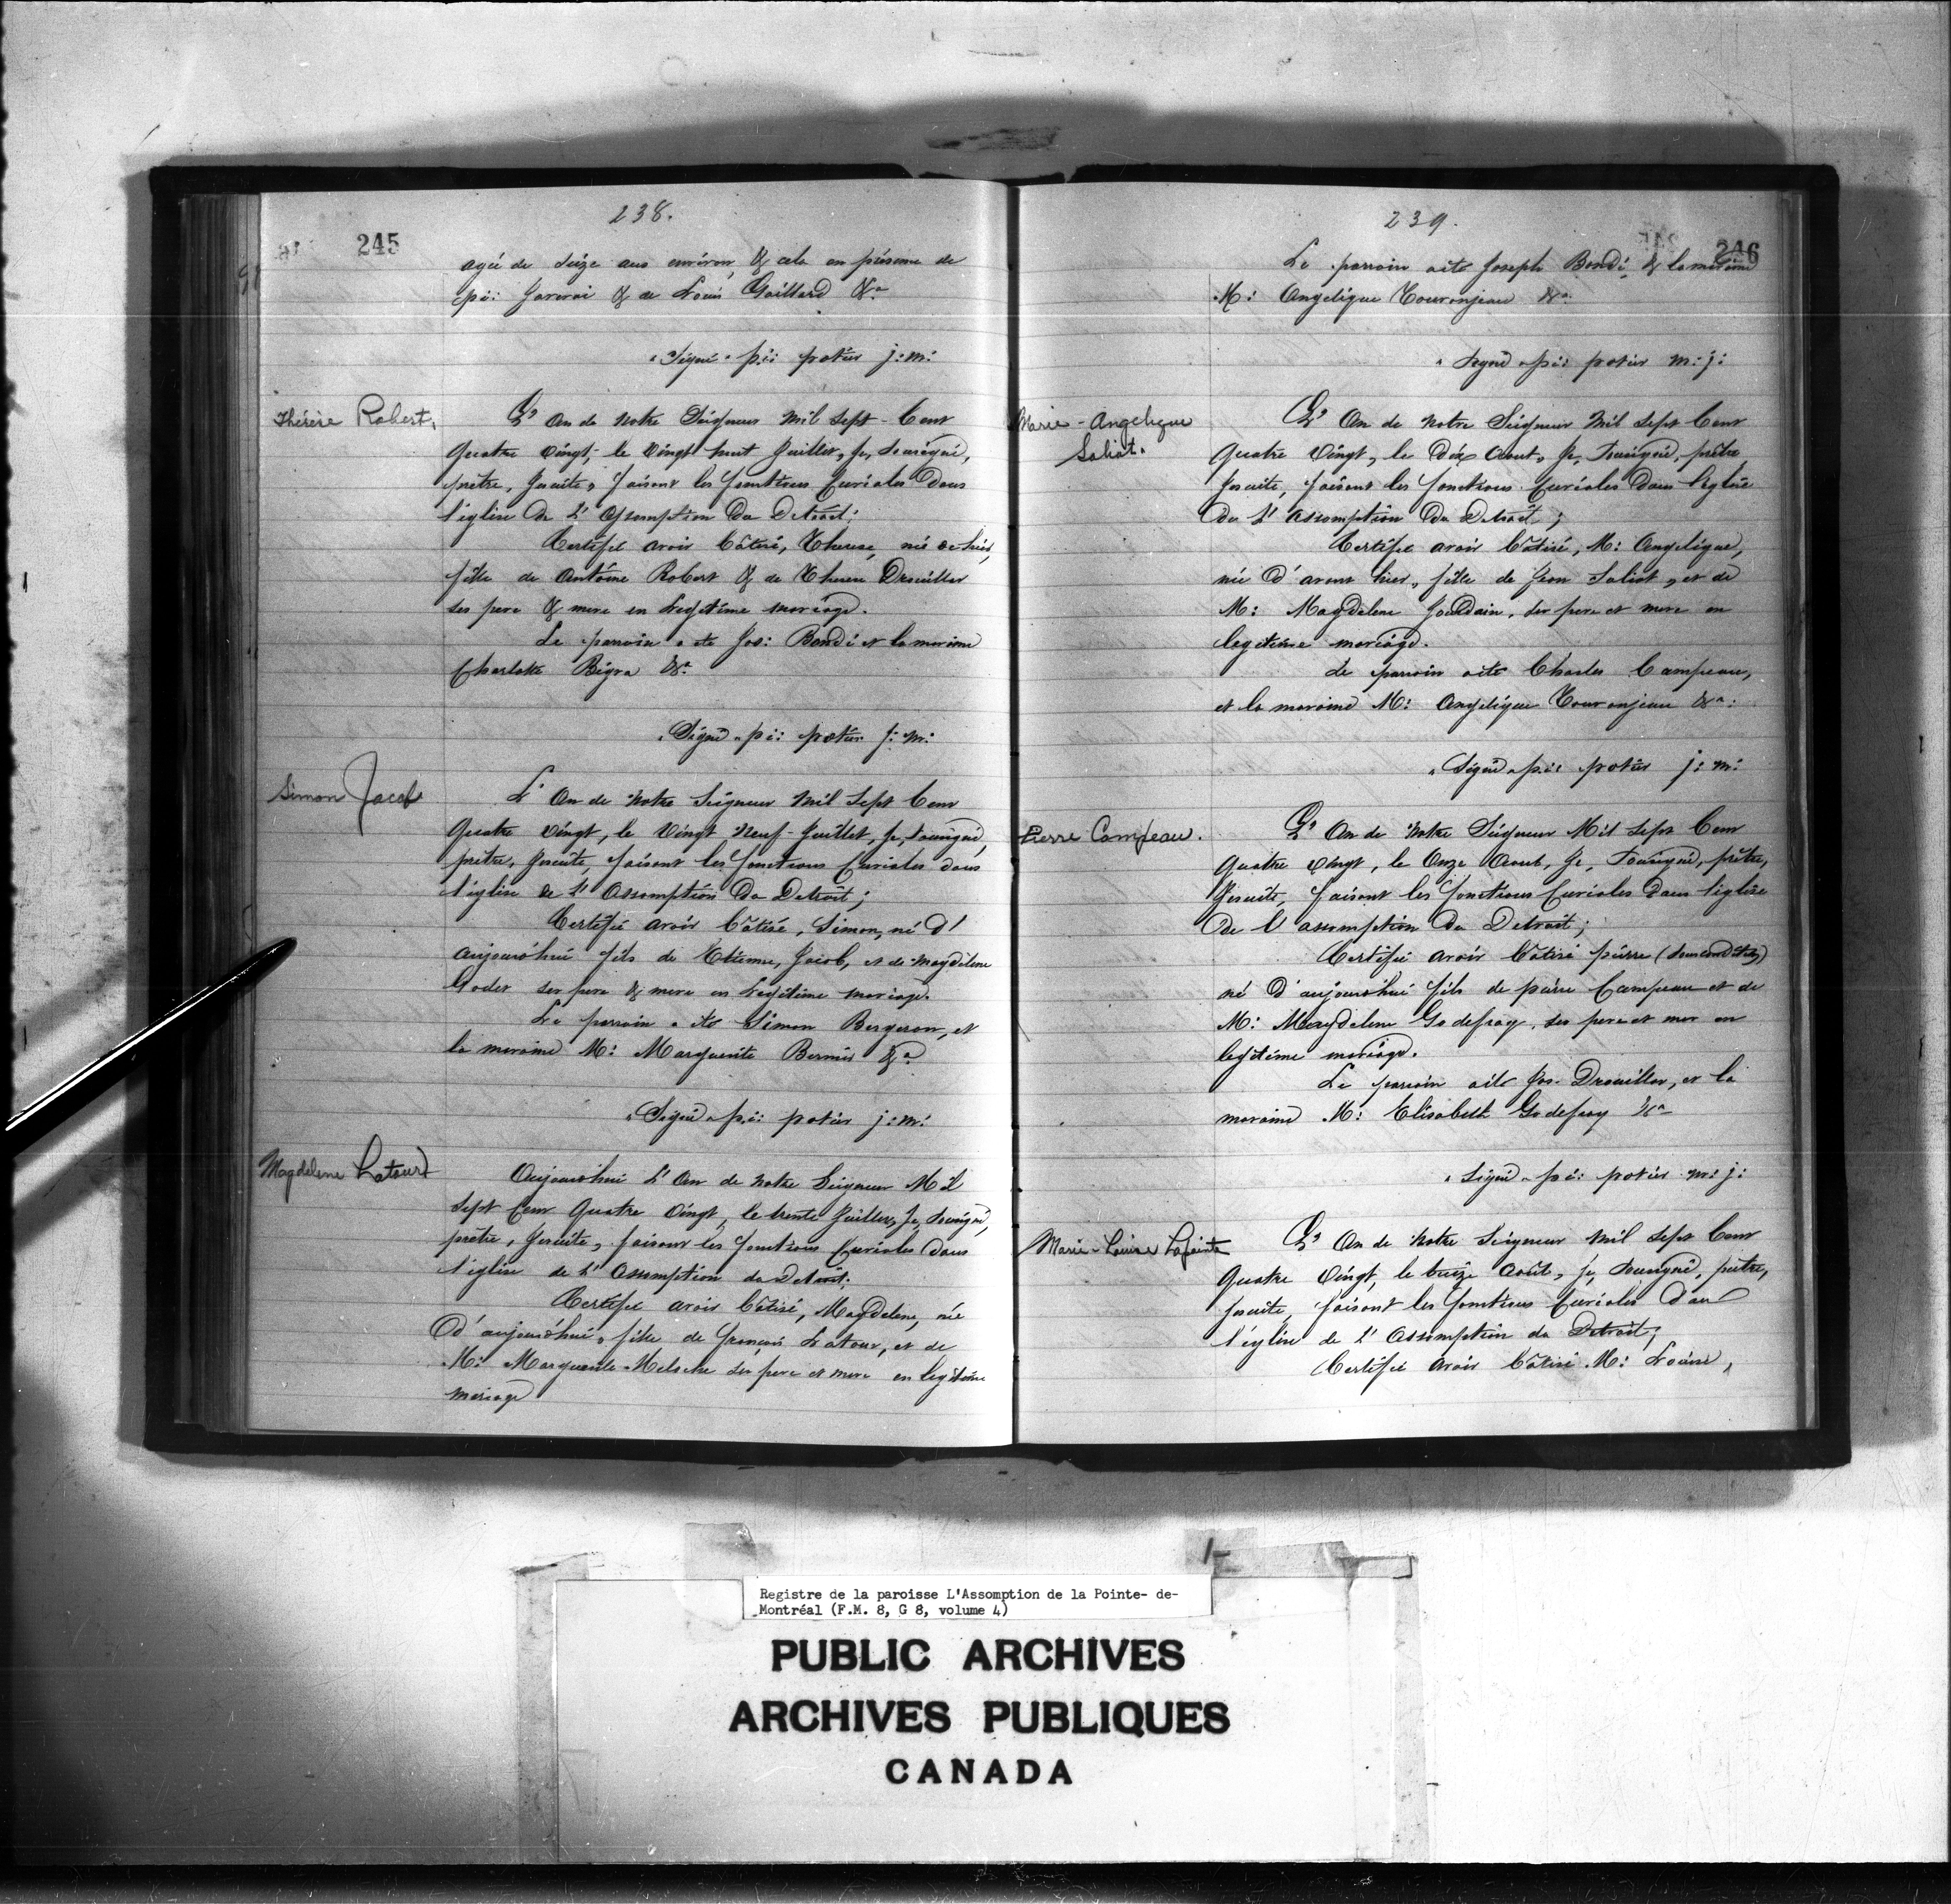 238.
245
agée de Seize ans environ, & cela en présence de
pi: Gervai & de Louis Gaillard &a
"Signé" pi: potier j: m:
Thérèse Robert.
L' An de Notre Seigneur Mil Sept Cent
Quatre Vingt, le Vingt huit Juillet, Je, Soussigné,
prêtre, Jesuite, faisant les fonctions Curiales Dans
l'église De L' Assomption Du Detroit;
Certifie avoir bâtisé, Therese, née
fille de Antoine Robert & de Therese Drouillar
ses pere & mere en Legitime mariage.
Le parrain a été Jos: Bondi et la maraine
Charlotte Regra &a
"Signé" pi: potier j: m:
Simon Jacob
L' An de Notre Seigneur Mil Sept Cent
Quatre Vingt, le Vingt Neuf Juillet, Je, Soussigné,
prêtre, Jesuite, faisant les fonctions Curiales dans
l'église de L' Assomption Du Detroit;
Certifie avoir bâtisé, Simon, né d'
aujourd'hui fils de Etienne, Jacob, et de Magdelene
Godet ses pere & mere en Legitime mariage.
Le parrain a été Simon Bergeron, et
la maraine M: Marguerite Bernis &a
"Signé" pi: potier j: m:
Magdelene Latour
Aujourd'hui L' An de Notre Seigneur Mil
Sept Cent Quatre Vingt, le trente Juillet, Je, Soussigné,
prêtre, Jesuite, faisant les fonctions Curiales Dans
l'église de L' Assomption du Detroit;
Certifie avoir bâtisé, Magdelene, née
D'aujourd'hui, fille de françois Latour, et de
M: Marguerite Meloche ses pere et mere en legitime
mariage
239.
246
Le parrain a été Joseph Bondi, & la maraine
M: Angelique Touranjeau &a
"Signé" pi: potier m: j:
Marie-Angelique
Saliot.
L' An de Notre Seigneur Mil Sept Cent
Quatre Vingt, le Dix Aout, Je, Soussigné, prêtre
Jesuite, faisant les fonctions Curiales Dans l'eglise
De L' Assomption Du Detroit;
Certifie avoir bâtisé, M: Angelique,
née D'avant hier, fille de Jean Saliot, et de
M: Magdelene Jourdain, ses pere et mere en
legitime mariage.
Le parrain a été Charles Campeau,
et la maraine M: Angelique Touranjeau &a:
"Signé" pi: potier j: m:
Pierre Campeau.
L' An de Notre Seigneur Mil Sept Cent
Quatre Vingt, le Onze Aout, Je, Soussigné, prêtre,
Jesuite, faisant les fonctions Curiales Dans l'église
De L' assomption Du Detroit;
Certifie avoir bâtisé pierre
né D'aujourd'hui fils de pierre Campeau et de
M: Magdelene Godefroy, ses pere et mer en
legitime mariage.
Le parrain a été Jos. Drouillar, et la
maraine M: Elisabeth Godefroy &a
"Signé" pi: potier m: j:
Marie-Louise Lapointe
L' An de Notre Seigneur Mil Sept Cent
Quatre Vingt, le treize Août, Je, Soussigné, prêtre,
Jesuite, faisant les fonctions Curiales Dans
l'église de L' Assomption du Detroit;
Certifie avoir bâtisé M: Louise,
Registre de la paroisse L'Assomption de la Pointe- de-
Montréal (F.M. 8, G 8, volume 4)
PUBLIC ARCHIVES
ARCHIVES PUBLIQUES
CANADA